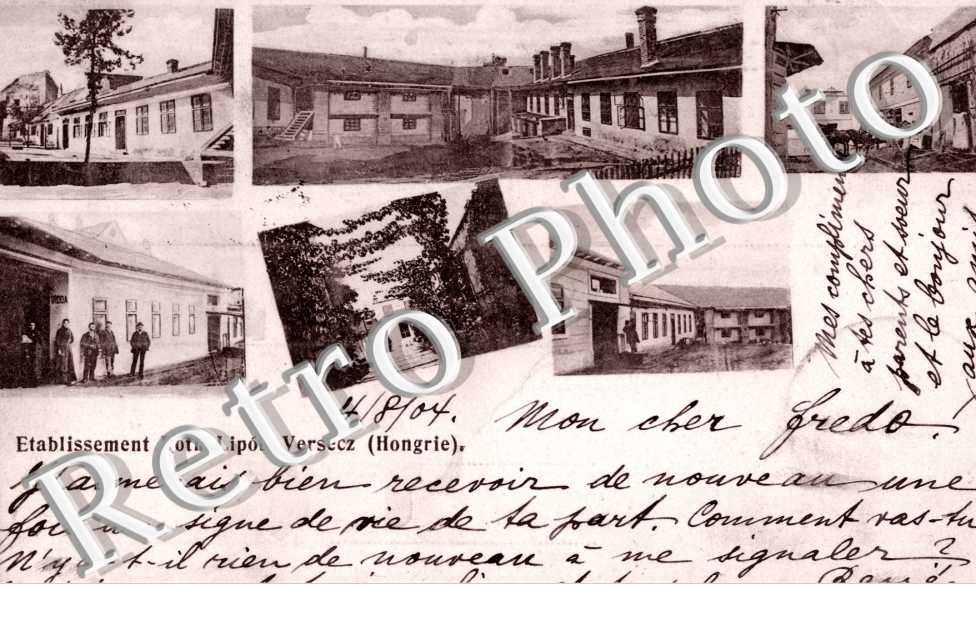 Mes complimen
à tes chers
parents et soeur
et le bonjour
aux
4/8/04.
Mon cher fredo.
Etablissement Roth Lipót Versecz (Hongrie).
J'aimerais bien recevoir de nouveau une
fois un signe de vie de ta part. Comment vas-tu
N'y a-t-il rien de nouveau à me signaler?
Retro Photo